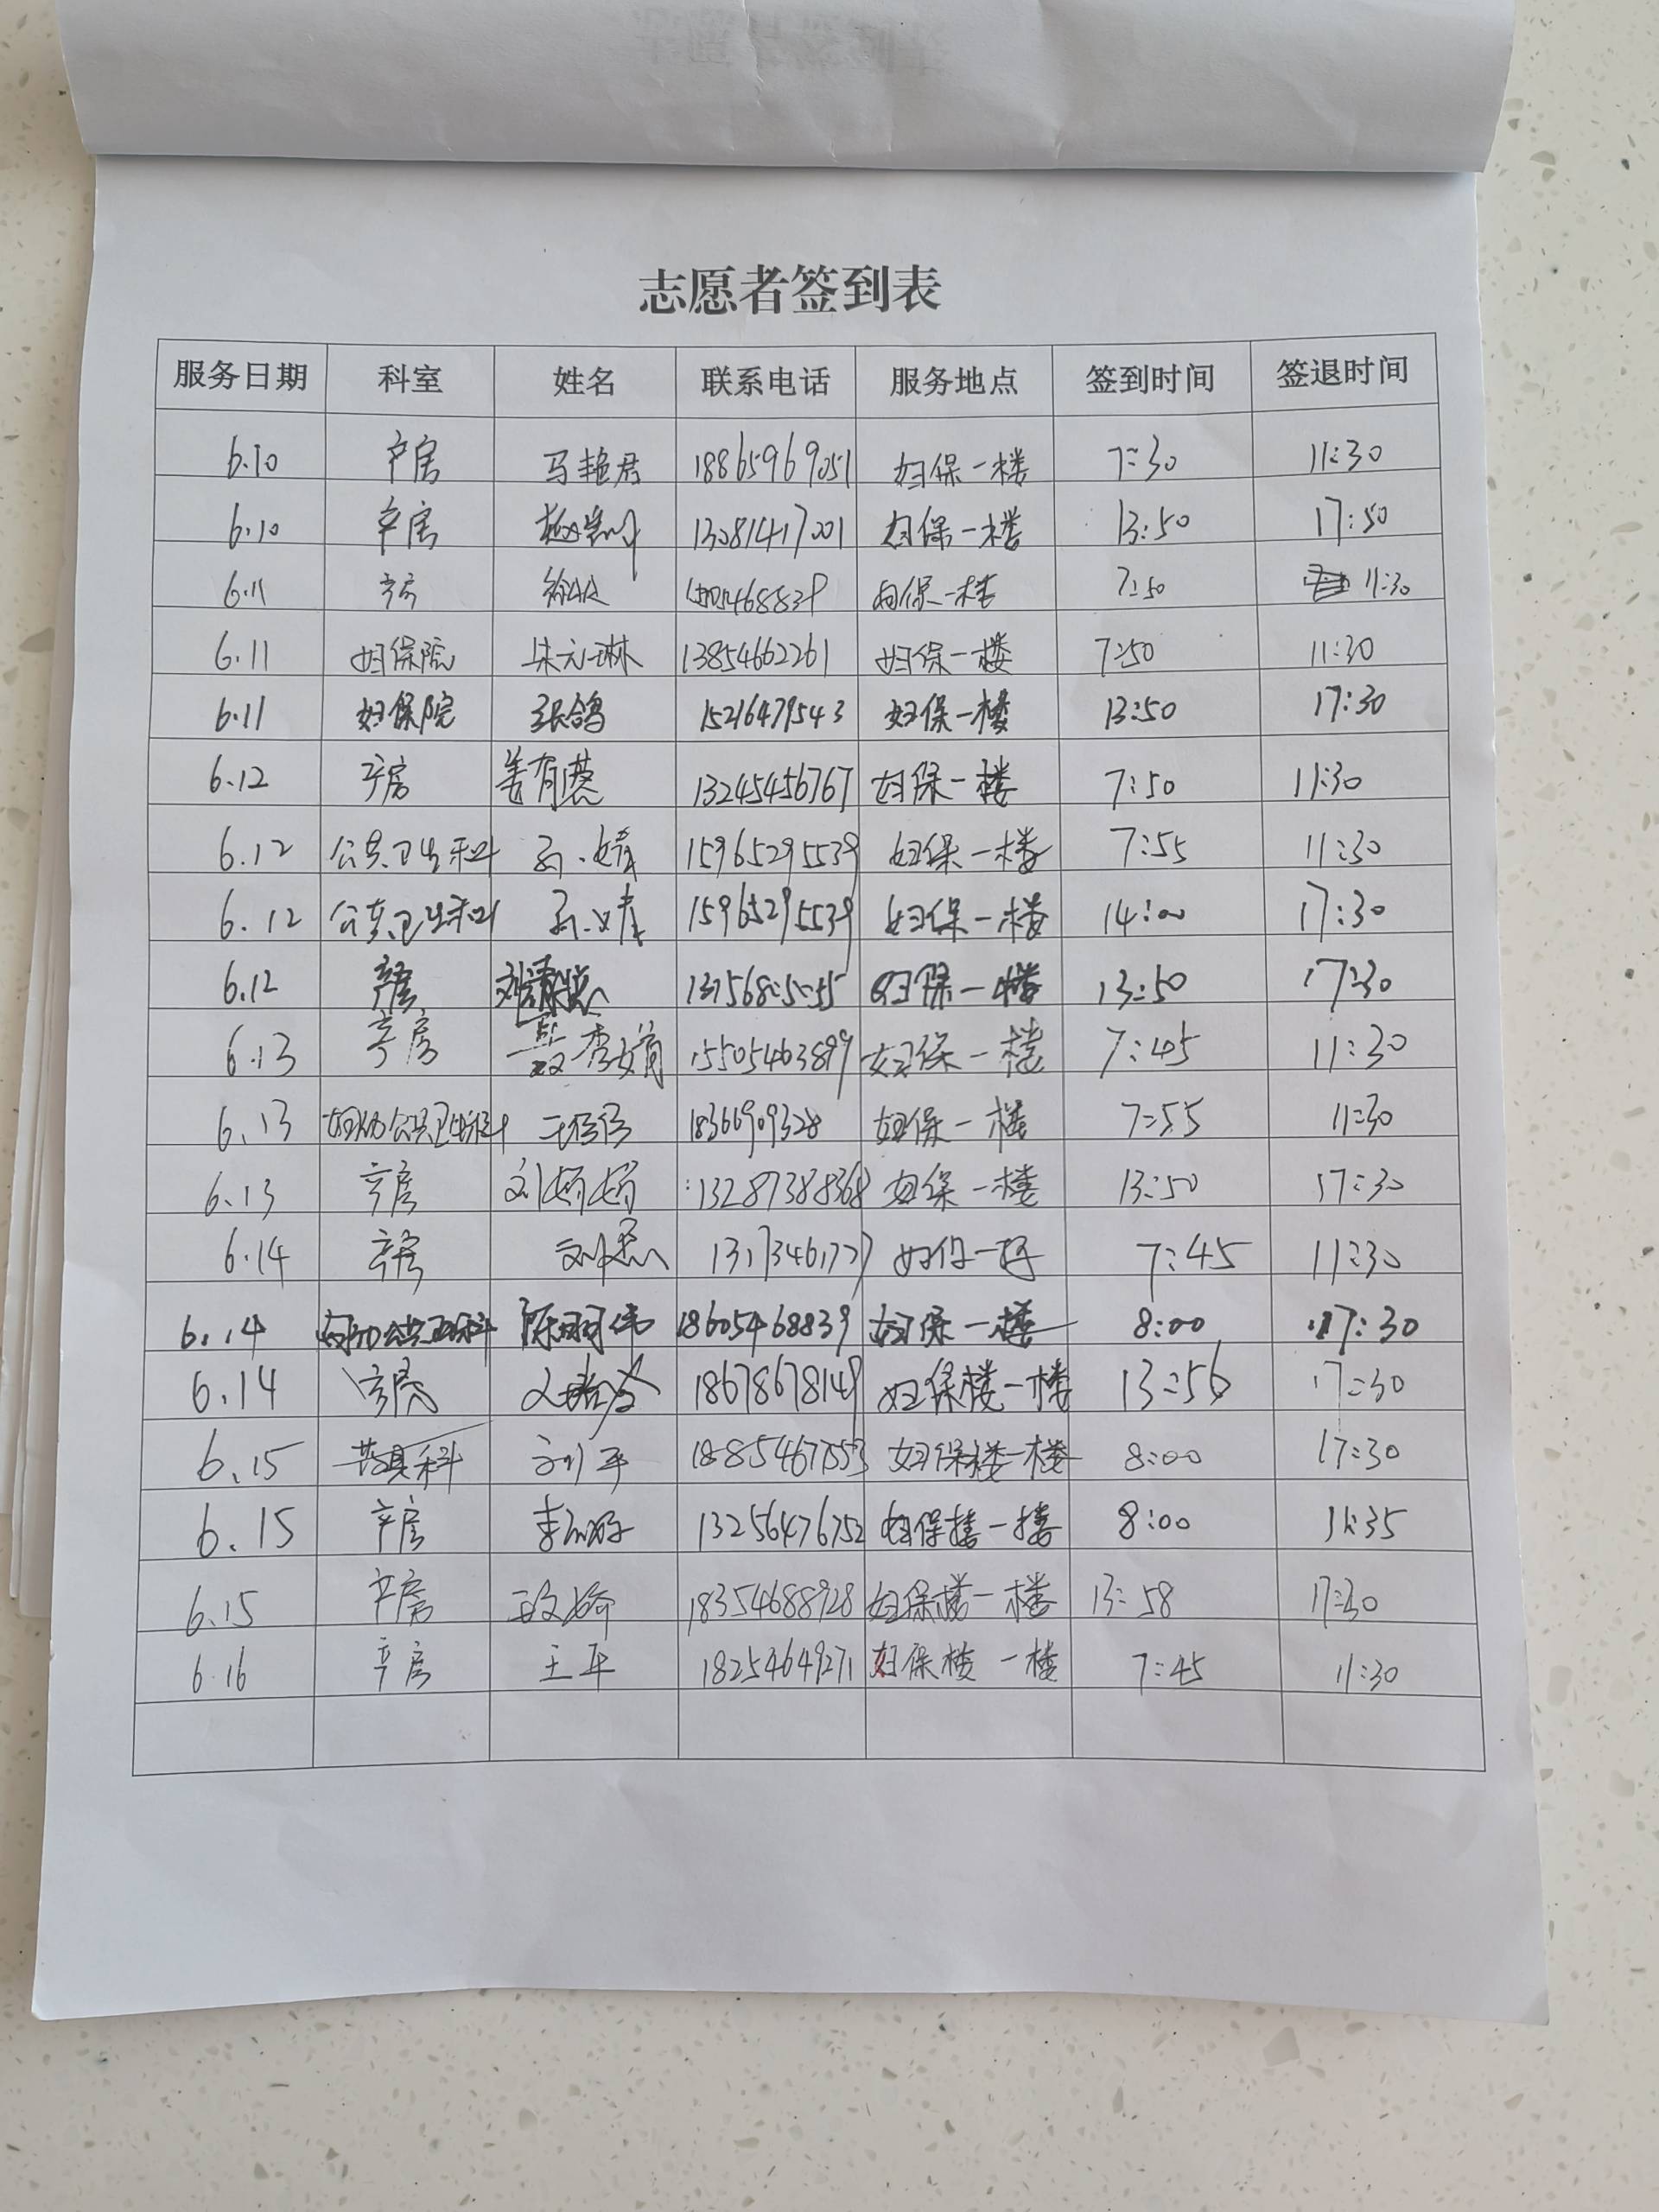 志愿者签到表
服务日期 科室 姓名 联系电话 服务地点 签到时间 签退时间
6.10 产房 马艳君 18865969051 妇保一楼 7:30 11:30
6.10 产房 妇保一楼 13:50 17:50
6.11 产房 妇保一楼 7:50 11:30
6.11 妇保院 朱元琳 13854662261 妇保一楼 7:50 11:30
6.11 妇保院 张鸽 15216479543 妇保一楼 13:50 17:30
6.12 产房 姜有慧 13245456767 妇保一楼 7:50 11:30
6.12 公共卫生科 孙婧 15965295539 妇保一楼 7:55 11:30
6.12 公共卫生科 孙婧 15965295539 妇保一楼 14:00 17:30
6.12 产房 妇保一楼 13:50 17:30
6.13 产房 15505463899 妇保一楼 7:45 11:30
6.13 妇幼公共卫生科 18366909328 妇保一楼 7:55 11:30
6.13 产房 刘娇娇 13287388368 妇保一楼 13:50 17:30
6.14 产房 妇保一楼 7:45 11:30
6.14 妇幼公共卫生科 陈丽伟 18605468839 妇保一楼 8:00 17:30
6.14 产房 18678678149 妇保楼一楼 13:56 17:30
6.15 药具科 刘平 18854677553 妇保楼一楼 8:00 17:30
6.15 产房 13256476752 妇保楼一楼 8:00 11:35
6.15 产房 18354688928 妇保楼一楼 13:58 17:30
6.16 产房 王平 18254649271 妇保楼一楼 7:45 11:30